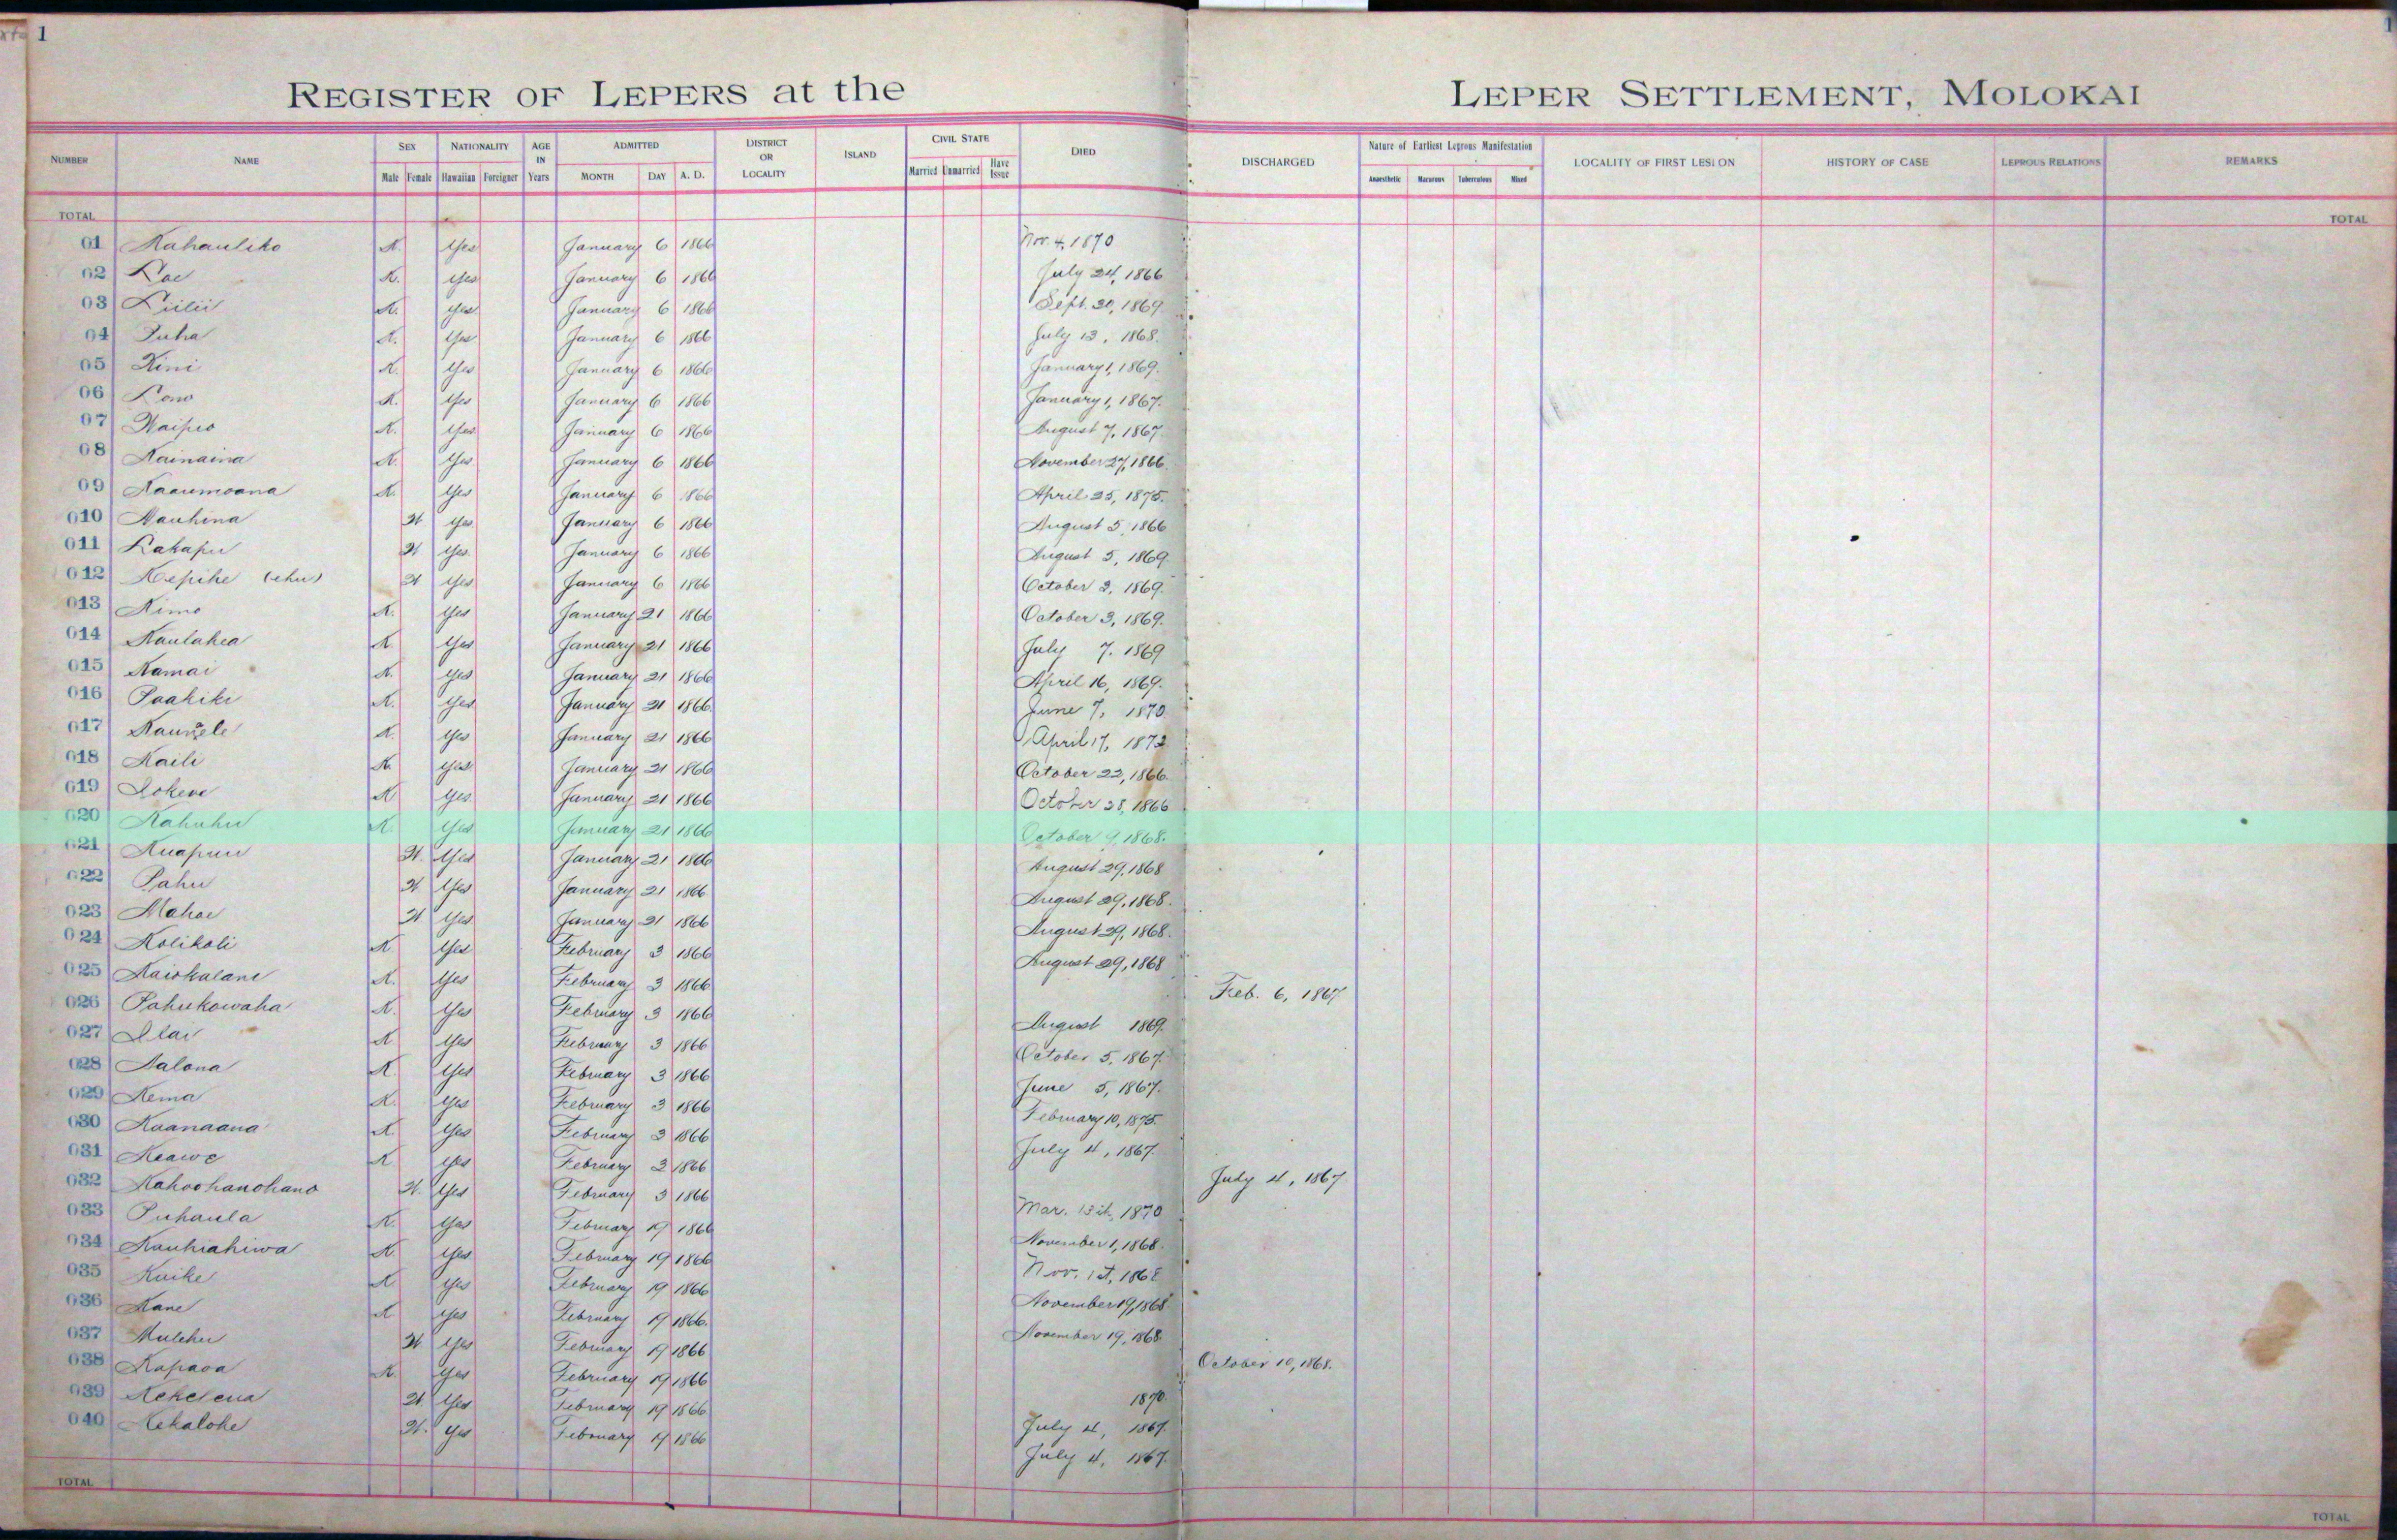 1
REGISTER OF LEPERS at the LEPER SETTLEMENT, MOLOKAI
NUMBER NAME SEX NATIONALITY AGE IN Years ADMITTED DISTRICT OR LOCALITY ISLAND CIVIL STATE DIED DISCHARGED Nature of Earliest Leprous Manifestation LOCALITY OF FIRST LESION HISTORY OF CASE LEPROUS RELATIONS REMARKS
Male Female Hawaiian Foreigner MONTH DAY A. D. Married Unmarried Have Issue Anaesthetic Macurous Tuberculous Mixed
TOTAL TOTAL
01 Kahauliko K. Yes January 6 1866 Nov. 4, 1870
02 Loe K. Yes January 6 1866 July 24, 1866
03 Liilii K. Yes January 6 1866 Sept. 30, 1869
04 Puha K. Yes January 6 1866 July 13, 1868.
05 Kini K. Yes January 6 1866 January 1, 1869.
06 Lono K. Yes January 6 1866 January 1, 1867.
07 Waipio K. Yes January 6 1866 August 7, 1867.
08 Kainaina K. Yes January 6 1866 November 27, 1866.
09 Kaaumoana K. Yes January 6 1866 April 25, 1875.
010 Nauhina W Yes January 6 1866 August 5, 1866
011 Lakapu W Yes January 6 1866 August 5, 1869.
012 Kepihe (ehu) W Yes January 6 1866 October 3, 1869.
013 Kimo K. Yes January 21 1866 October 3, 1869.
014 Kaulahea K. Yes January 21 1866 July 7. 1869
015 Kamai K. Yes January 21 1866 April 16, 1869.
016 Paakiki K. Yes January 21 1866 June 7, 1870
017 K. Yes January 21 1866 April 17, 1872
018 Kaili K Yes January 21 1866 October 22, 1866.
019 Lokene K Yes January 21 1866 October 28, 1866
020 Kahuhu K. Yes January 21 1866 October 9, 1868.
021 Kuapuu W. Yes January 21 1866 August 29, 1868
022 Pahu W Yes January 21 1866 August 29, 1868.
023 Mahoe W Yes January 21 1866 August 29, 1868.
024 Kolikoli K. Yes February 3 1866 August 29, 1868
025 Kaiokalani K. Yes February 3 1866 Feb. 6, 1867
026 Pahukowaha K. Yes February 3 1866 August 1869.
027 Ilai K Yes February 3 1866 October 5, 1867.
028 Halona K. Yes February 3 1866 June 5, 1867.
029 Kema K. Yes February 3 1866 February 10, 1875.
030 Kaanaana K. Yes February 3 1866 July 4, 1867
031 Keawe K Yes February 3 1866 July 4, 1867
032 Kahoohanohano W. Yes February 3 1866 Mar. 15th, 1870
033 Puhaula K. Yes February 19 1866 November 1, 1868.
034 Kauhiahiwa K. Yes February 19 1866 Nov. 1st, 1868
035 Kaike K Yes February 19 1866 November 19, 1868
036 Kane K Yes February 19 1866. November 19, 1868.
037 Mulehu W Yes February 19 1866 October 10, 1868.
038 Kapaoa K. Yes February 19 1866 1870.
039 Kekelena W Yes February 19 1866 July 4, 1867.
040 Kekalohe W. Yes February 19 1866 July 4, 1867.
TOTAL TOTAL